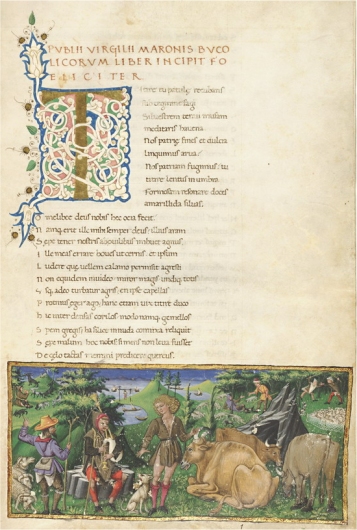 PVBLII VIRGILII MARONIS BVCO
LICORVM LIBER INCIPIT FO
ELICITER
Itire tu patulę recubans
Silvestrem tenui
meditaris
Nos patrię fines et dulcia
linquimus arva
Nos patriam fugimus tu
titire lentus in umbra
Formosam resonare doces
amarillida silvas.
O melibee deus nobis hec ocia fecit.
N anque erit ille mihi semper deus illius aram
S epe tener nostris ab ovilibus imbuet agnus.
I lle meas errare boves ut cernis et ipsum
L udere que vellem calamo permisit agresti
N on equidem invideo miror magis undique totis
S que adeo turbatur agris en ipse capellas
P rotinus eger ago hanc etiam vix titire duco
H ic inter densas corilos modo namque gemellos
S pem gregis ha silice in nuda conixa reliquit
S epe malum hoc nobis si mens non leva fuisset
D e celo tactas memini predicere quercus.